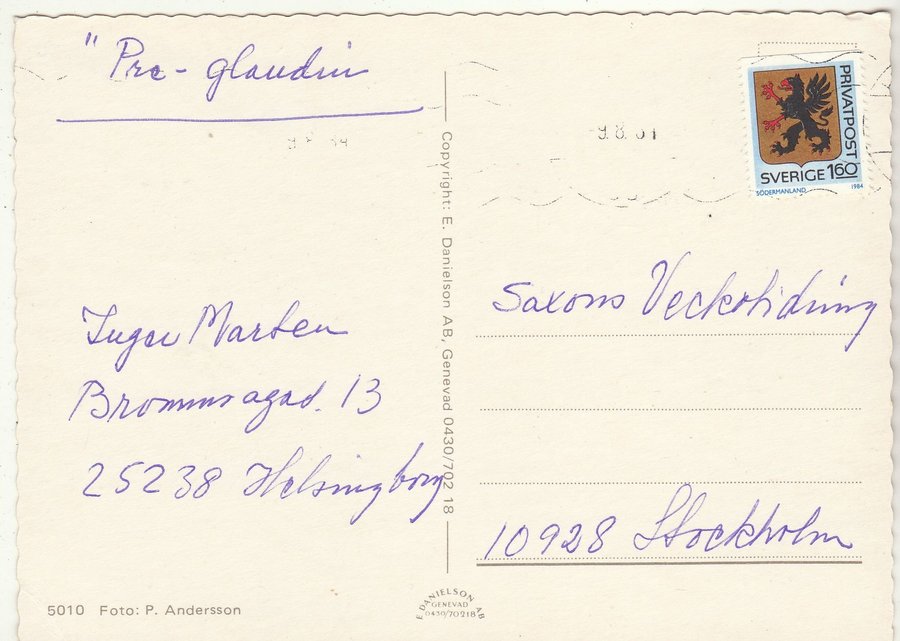 " Pre-glandin
9.8.
PRIVATPOST
SVERIGE 160
SÖDERMANLAND 1984
Copyright: E. Danielson AB, Genevad 0430/702 18
Saxons Veckotidning
10928 Stockholm
Inger Marten
Brommagad. 13
25238 Helsingborg
5010 Foto: P. Andersson
E. DANIELSON AB
GENEVAD
0430/70218